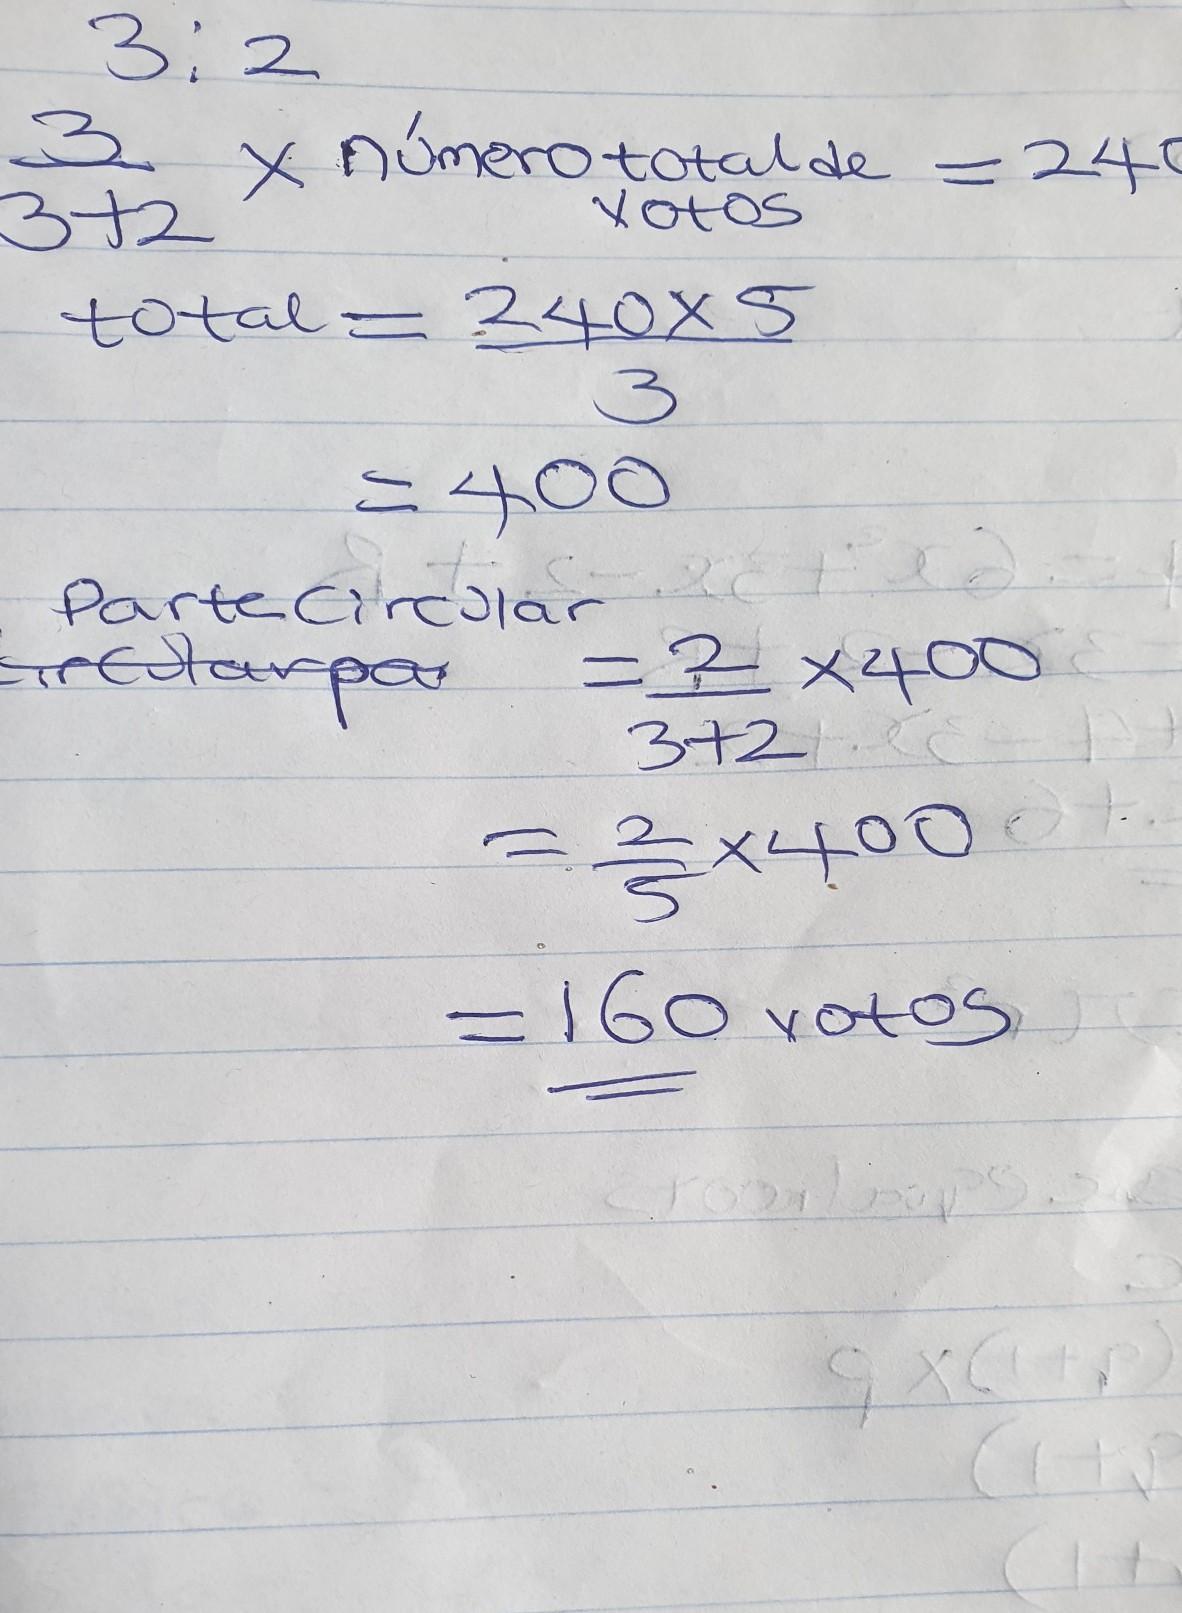 3:2
3/(3+2) × número total de votos = 240
total = (240×5)/3
= 400
Parte circular
circular pa = 2/(3+2) ×400
= 2/5 ×400
= 160 votos